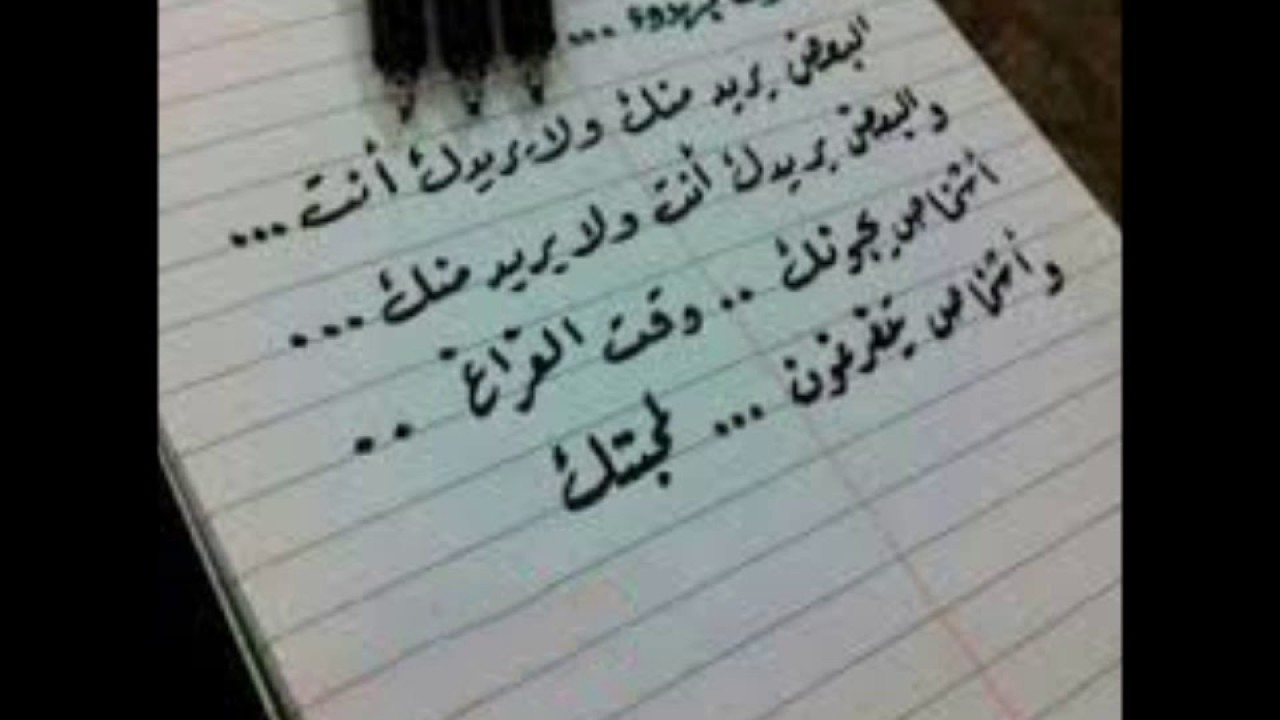 بهدوء ...
البعض يريد منك ولا يريدك أنت ...
والبعض يريدك أنت ولا يريد منك ...
أشخاص يحبونك .. وقت الفراغ ..
وأشخاص يتفرغون ... لمحبتك